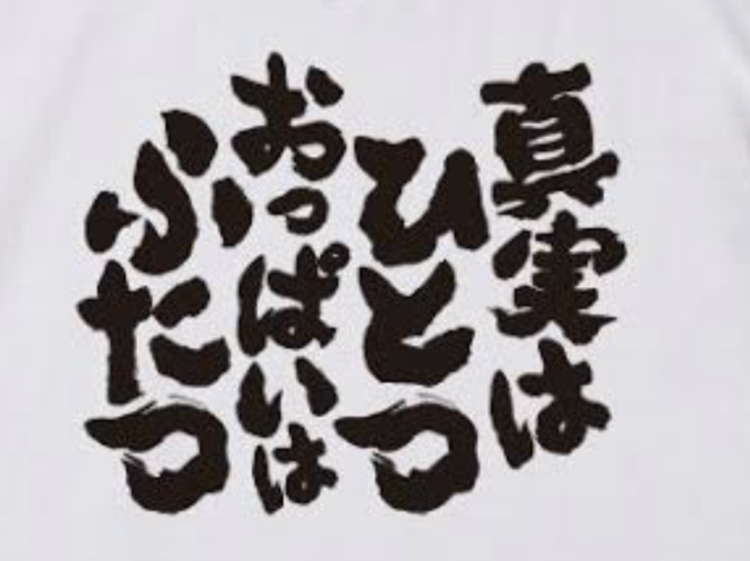 真実は
ひとつ
おっぱいは
ふたつ